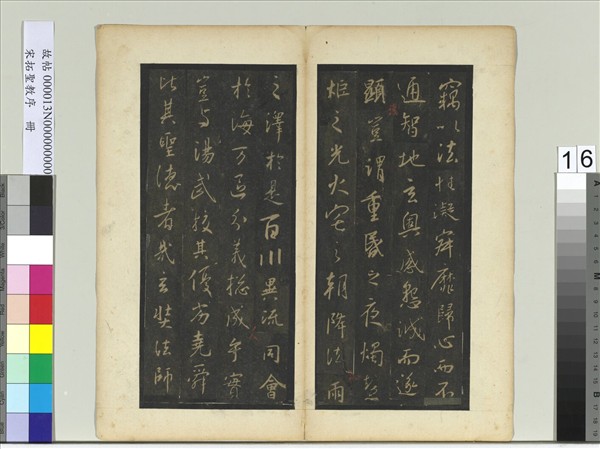 故帖 000013N000000000
宋拓聖教序 冊
竊以法性凝寂靡歸心而不
通智地玄奧感懇誠而遂
顯豈謂重昏之夜燭慧
炬之光火宅之朝降法雨
之澤於是百川異流同會
於海万區分義揔成乎實
豈与湯武校其優劣堯舜
比其聖德者哉玄奘法師
16
A
M
B